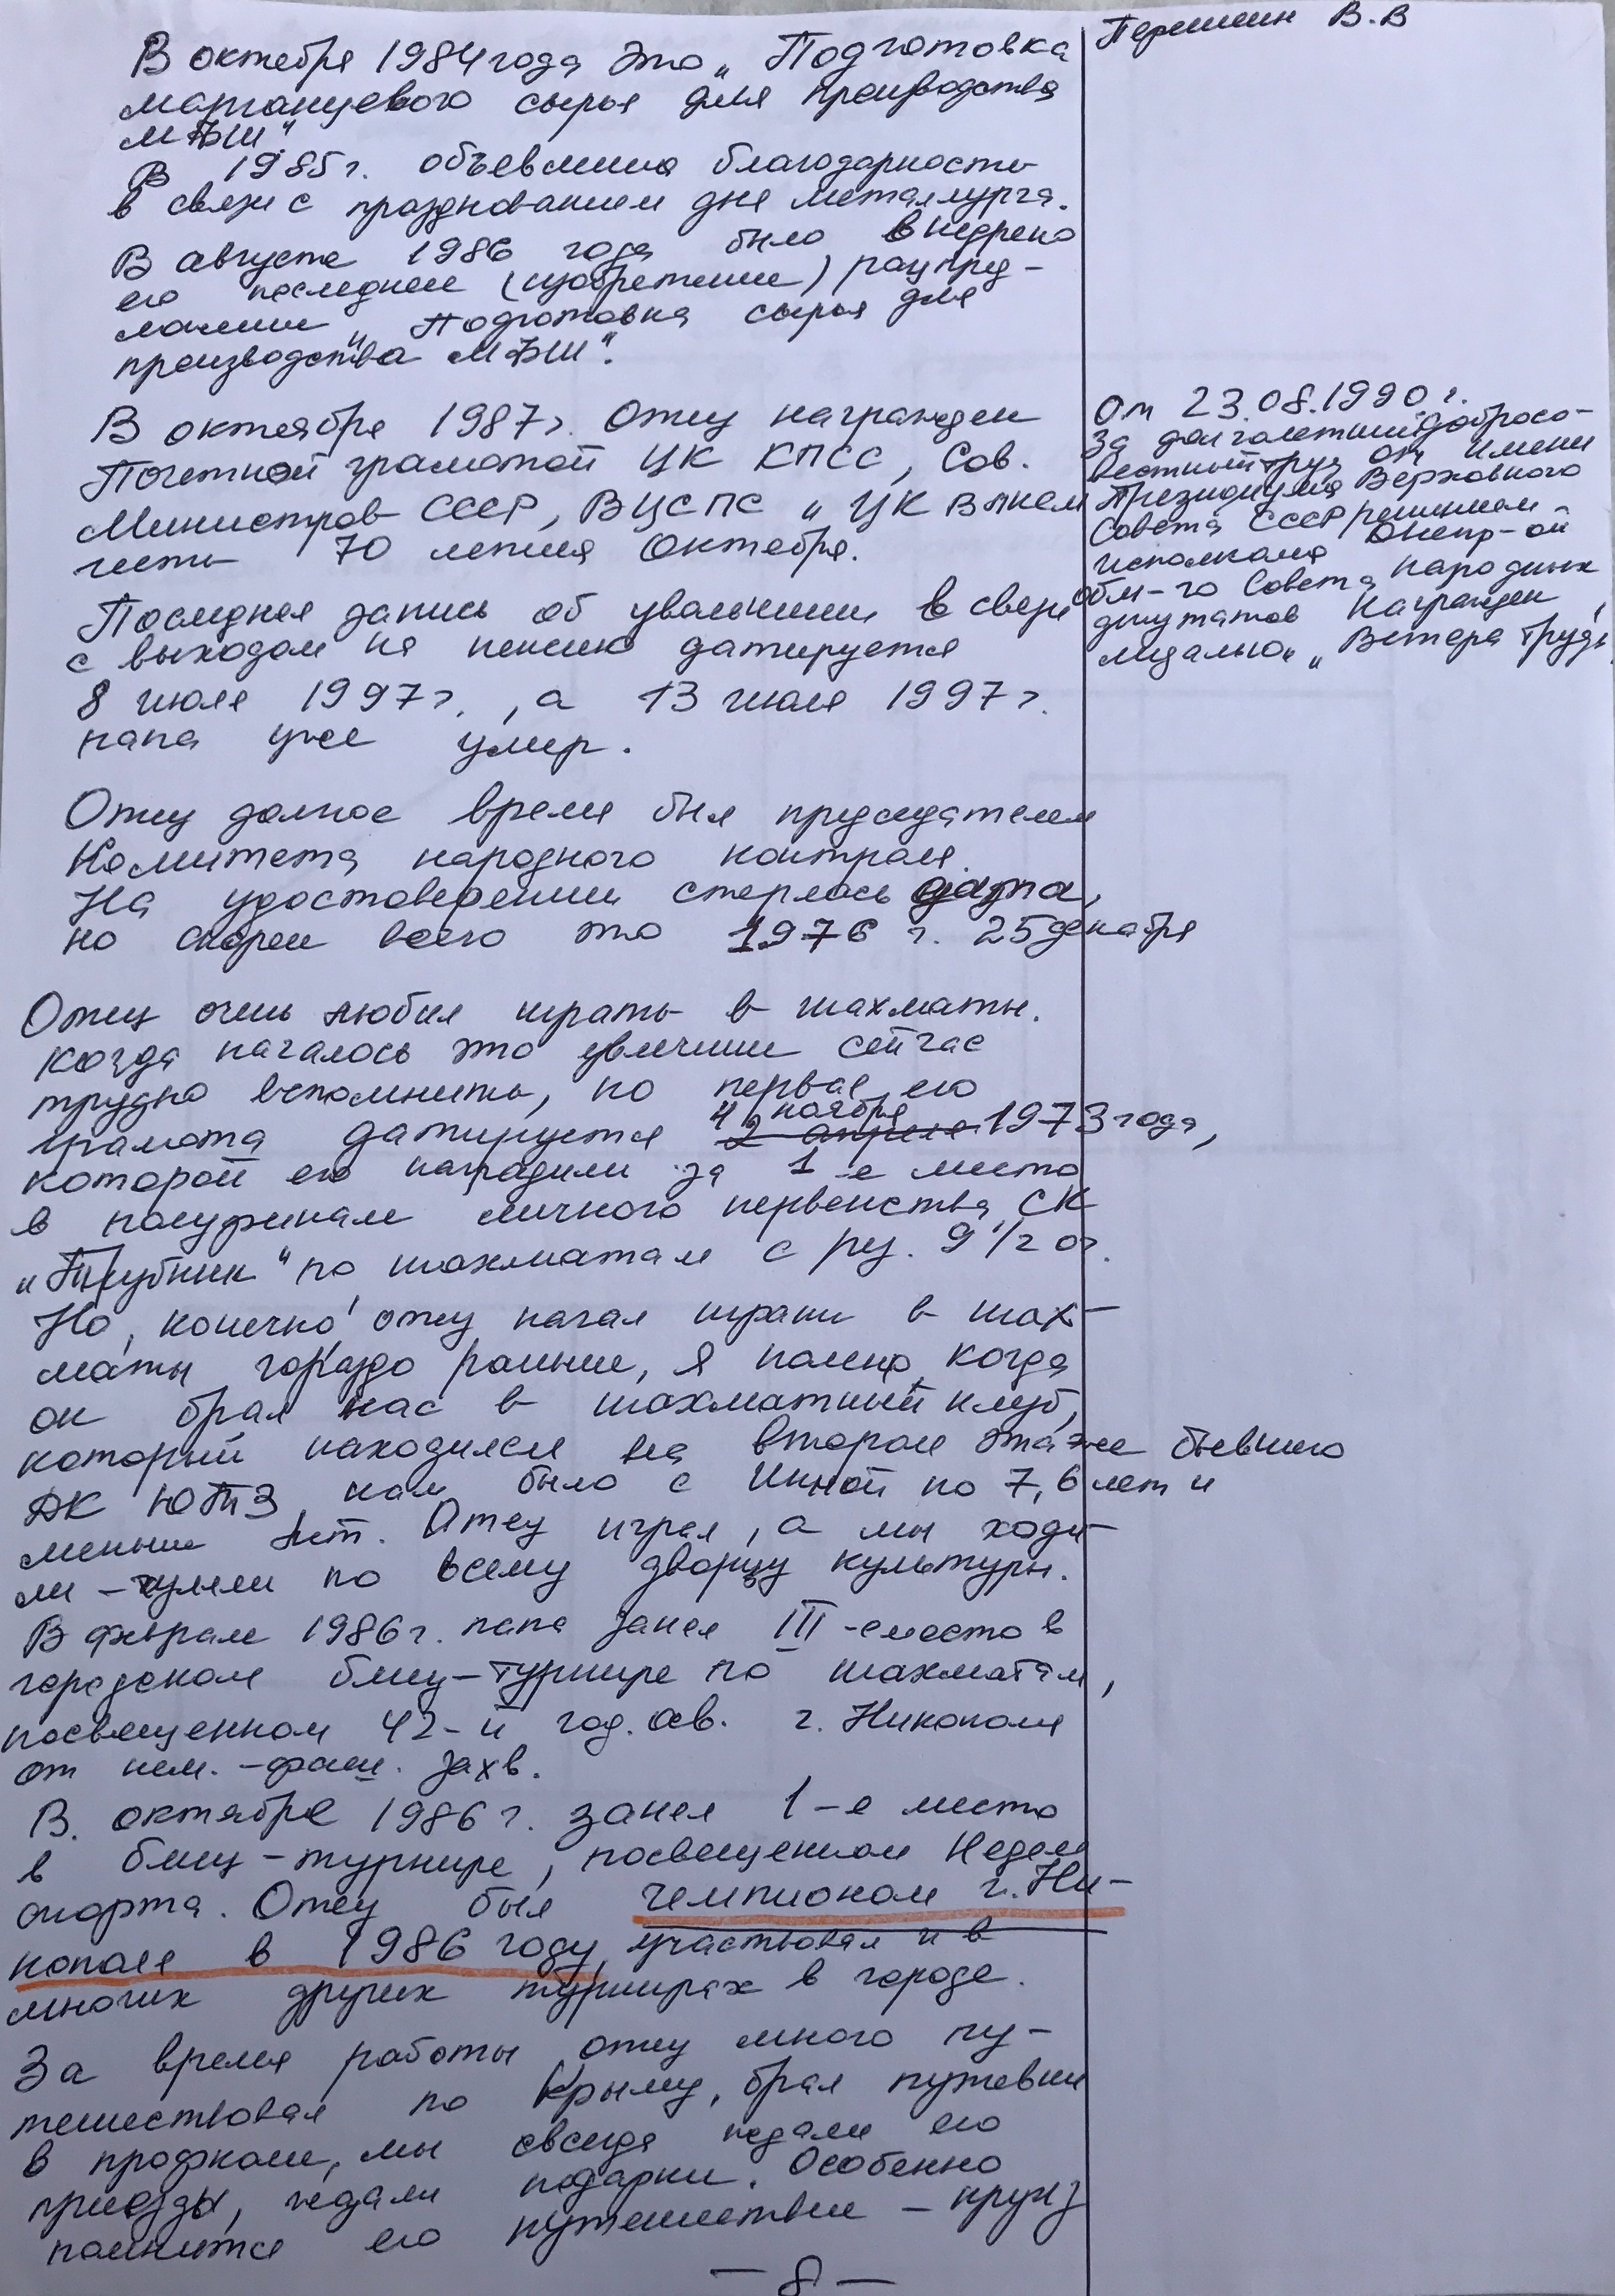 Першин В.В
В октября 1984 года это „Подготовка
марганцевого сырья для производства
МБШ"
В 1985 г. объявлена благодарность
в связи с празднованием дня металлурга.
В августе 1986 года было внедрено
его последнее (изобретение) рацпред-
ложение „Подготовка сырья для
производства МБШ".
В октября 1987 г. Отец награжден
Почетной грамотой ЦК КПСС, Сов.
Министров СССР, ВЦСПС и ЦК ВЛКСМ
честь 70 летия Октября.
Последняя запись об увальнении в связи
с выходом на пенсию датируется
8 июля 1997 г., а 13 июля 1997 г.
папа уже умер.
От 23.08.1990 г.
За долголетний добросо-
вестный труд от имени
Президиума Верховного
Совета СССР решением
исполкома Днепр-ой
обл-го Совета народных
депутатов награжден
медалью „Ветера Труда
Отец долгое время был председателем
Комитета народного контроля.
На удостоверении стерлась дата,
но скорей всего это 1976 г. 25 декабря
Отец очень любил играть в шахматы.
Когда началось это увлечение сейчас
трудно вспомнить, но первая его
грамота датируется 2 апреля 4 ноября 1973 года,
которой его наградили за 1-е место
в полуфинале личного первенства СК
„Трубник" по шахматам с рез. 9 1/2 оч.
Но, конечно, отец начал играть в шах-
маты гораздо раньше, я помню, когда
он брал нас в шахматный клуб,
который находился на втором этаже бывшего
ДК ЮТЗ, нам было с Инной по 7, 6 лет и
меньше лет. Отец играл, а мы ходи-
ли-гуляли по всему дворцу культуры.
В феврале 1986 г. папа занял III-е место в
городском блиц-турнире по шахматам,
посвященном 42-й год. осв. г. Никополя
от нем.-фаш. захв.
В. октябре 1986 г. занял 1-е место
в блиц-турнире, посвященном Недели
спорта. Отец был чемпионом г. Ни-
кополя в 1986 году, участвовал и в
многих других турнирах в городе.
За время работы отец много пу-
тешествовал по Крыму, брал путевки
в профкоме, мы всегда ждали его
приезды, ждали подарки. Особенно
помнится его путешествие - круиз
- 8 -